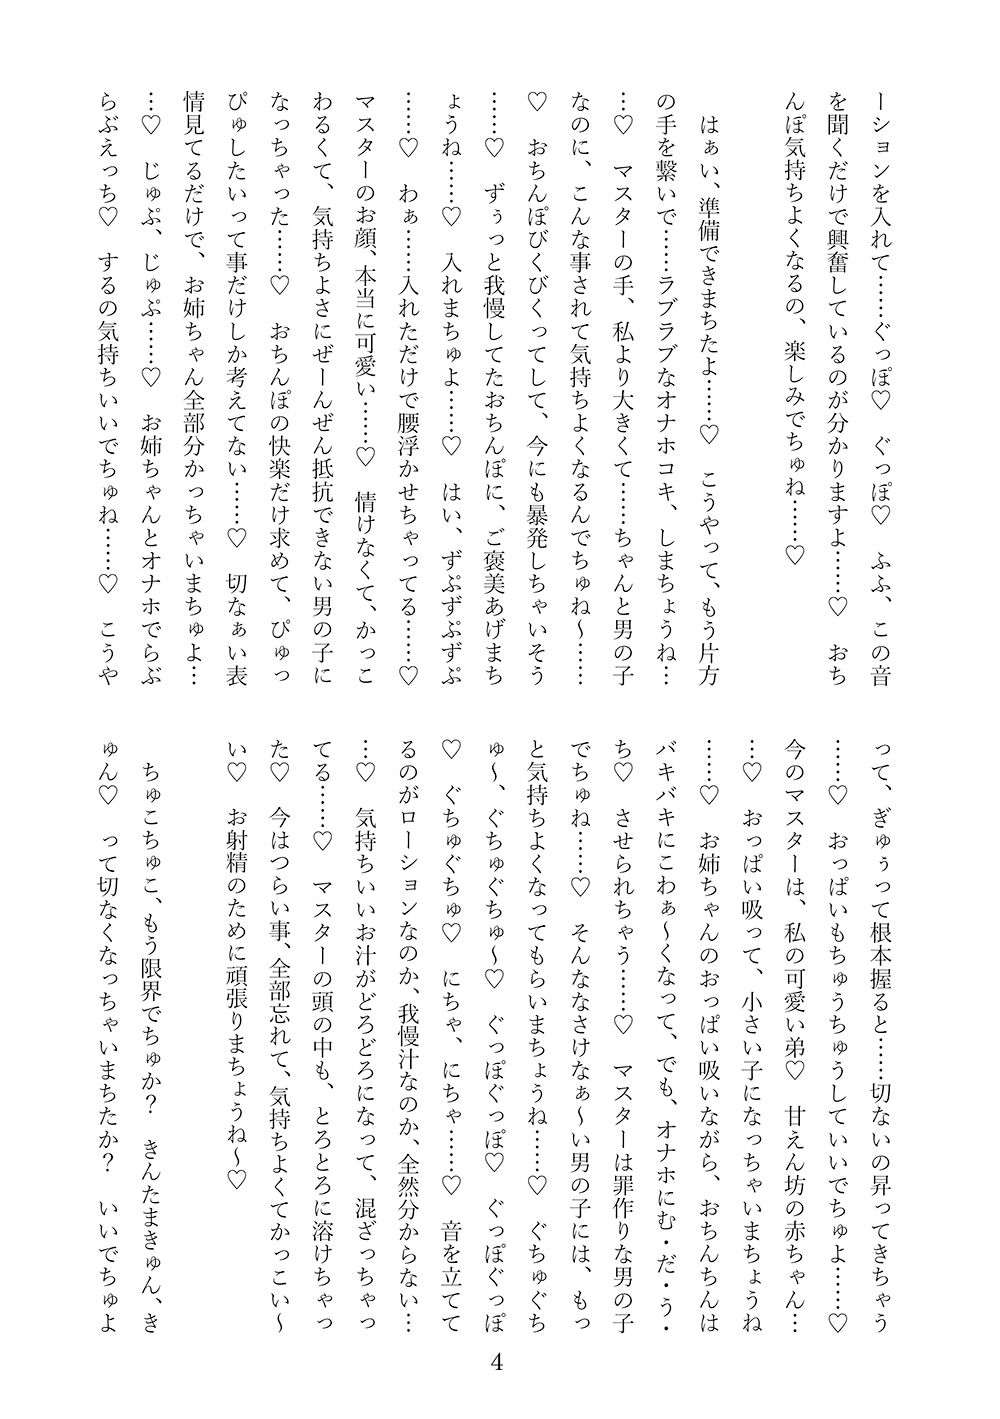 ーションを入れて……ぐっぽ♡　ぐっぽ♡　ふふ、この音
を聞くだけで興奮しているのが分かりますよ……♡　おち
んぽ気持ちよくなるの、楽しみでちゅね……♡
はぁい、準備できまちたよ……♡　こうやって、もう片方
の手を繋いで……ラブラブなオナホコキ、しまちょうね…
…♡　マスターの手、私より大きくて……ちゃんと男の子
なのに、こんな事されて気持ちよくなるんでちゅね〜……
♡　おちんぽびくびくってして、今にも暴発しちゃいそう
……♡　ずぅっと我慢してたおちんぽに、ご褒美あげまち
ょうね……♡　入れまちゅよ……♡　はい、ずぷずぷずぷ
……♡　わぁ……入れただけで腰浮かせちゃってる……♡
マスターのお顔、本当に可愛い……♡　情けなくて、かっこ
わるくて、気持ちよさにぜーんぜん抵抗できない男の子に
なっちゃった……♡　おちんぽの快楽だけ求めて、ぴゅっ
ぴゅしたいって事だけしか考えてない……♡　切なぁい表
情見てるだけで、お姉ちゃん全部分かっちゃいまちゅよ…
…♡　じゅぷ、じゅぷ……♡　お姉ちゃんとオナホでらぶ
らぶえっち♡　するの気持ちいいでちゅね……♡　こうや
って、ぎゅぅって根本握ると……切ないの昇ってきちゃう
……♡　おっぱいもちゅうちゅうしていいでちゅよ……♡
今のマスターは、私の可愛い弟♡　甘えん坊の赤ちゃん…
…♡　おっぱい吸って、小さい子になっちゃいまちょうね
……♡　お姉ちゃんのおっぱい吸いながら、おちんちんは
バキバキにこわぁ〜くなって、でも、オナホにむ・だ・う・
ち♡　させられちゃう……♡　マスターは罪作りな男の子
でちゅね……♡　そんななさけなぁ〜い男の子には、もっ
と気持ちよくなってもらいまちょうね……♡　ぐちゅぐち
ゅ〜、ぐちゅぐちゅ〜♡　ぐっぽぐっぽ♡　ぐっぽぐっぽ
♡　ぐちゅぐちゅ♡　にちゃ、にちゃ……♡　音を立てて
るのがローションなのか、我慢汁なのか、全然分からない…
…♡　気持ちいいお汁がどろどろになって、混ざっちゃっ
てる……♡　マスターの頭の中も、とろとろに溶けちゃっ
た♡　今はつらい事、全部忘れて、気持ちよくてかっこい〜
い♡　お射精のために頑張りまちょうね〜♡
ちゅこちゅこ、もう限界でちゅか？　きんたまきゅん、き
ゅん♡　って切なくなっちゃいまちたか？　いいでちゅよ
4